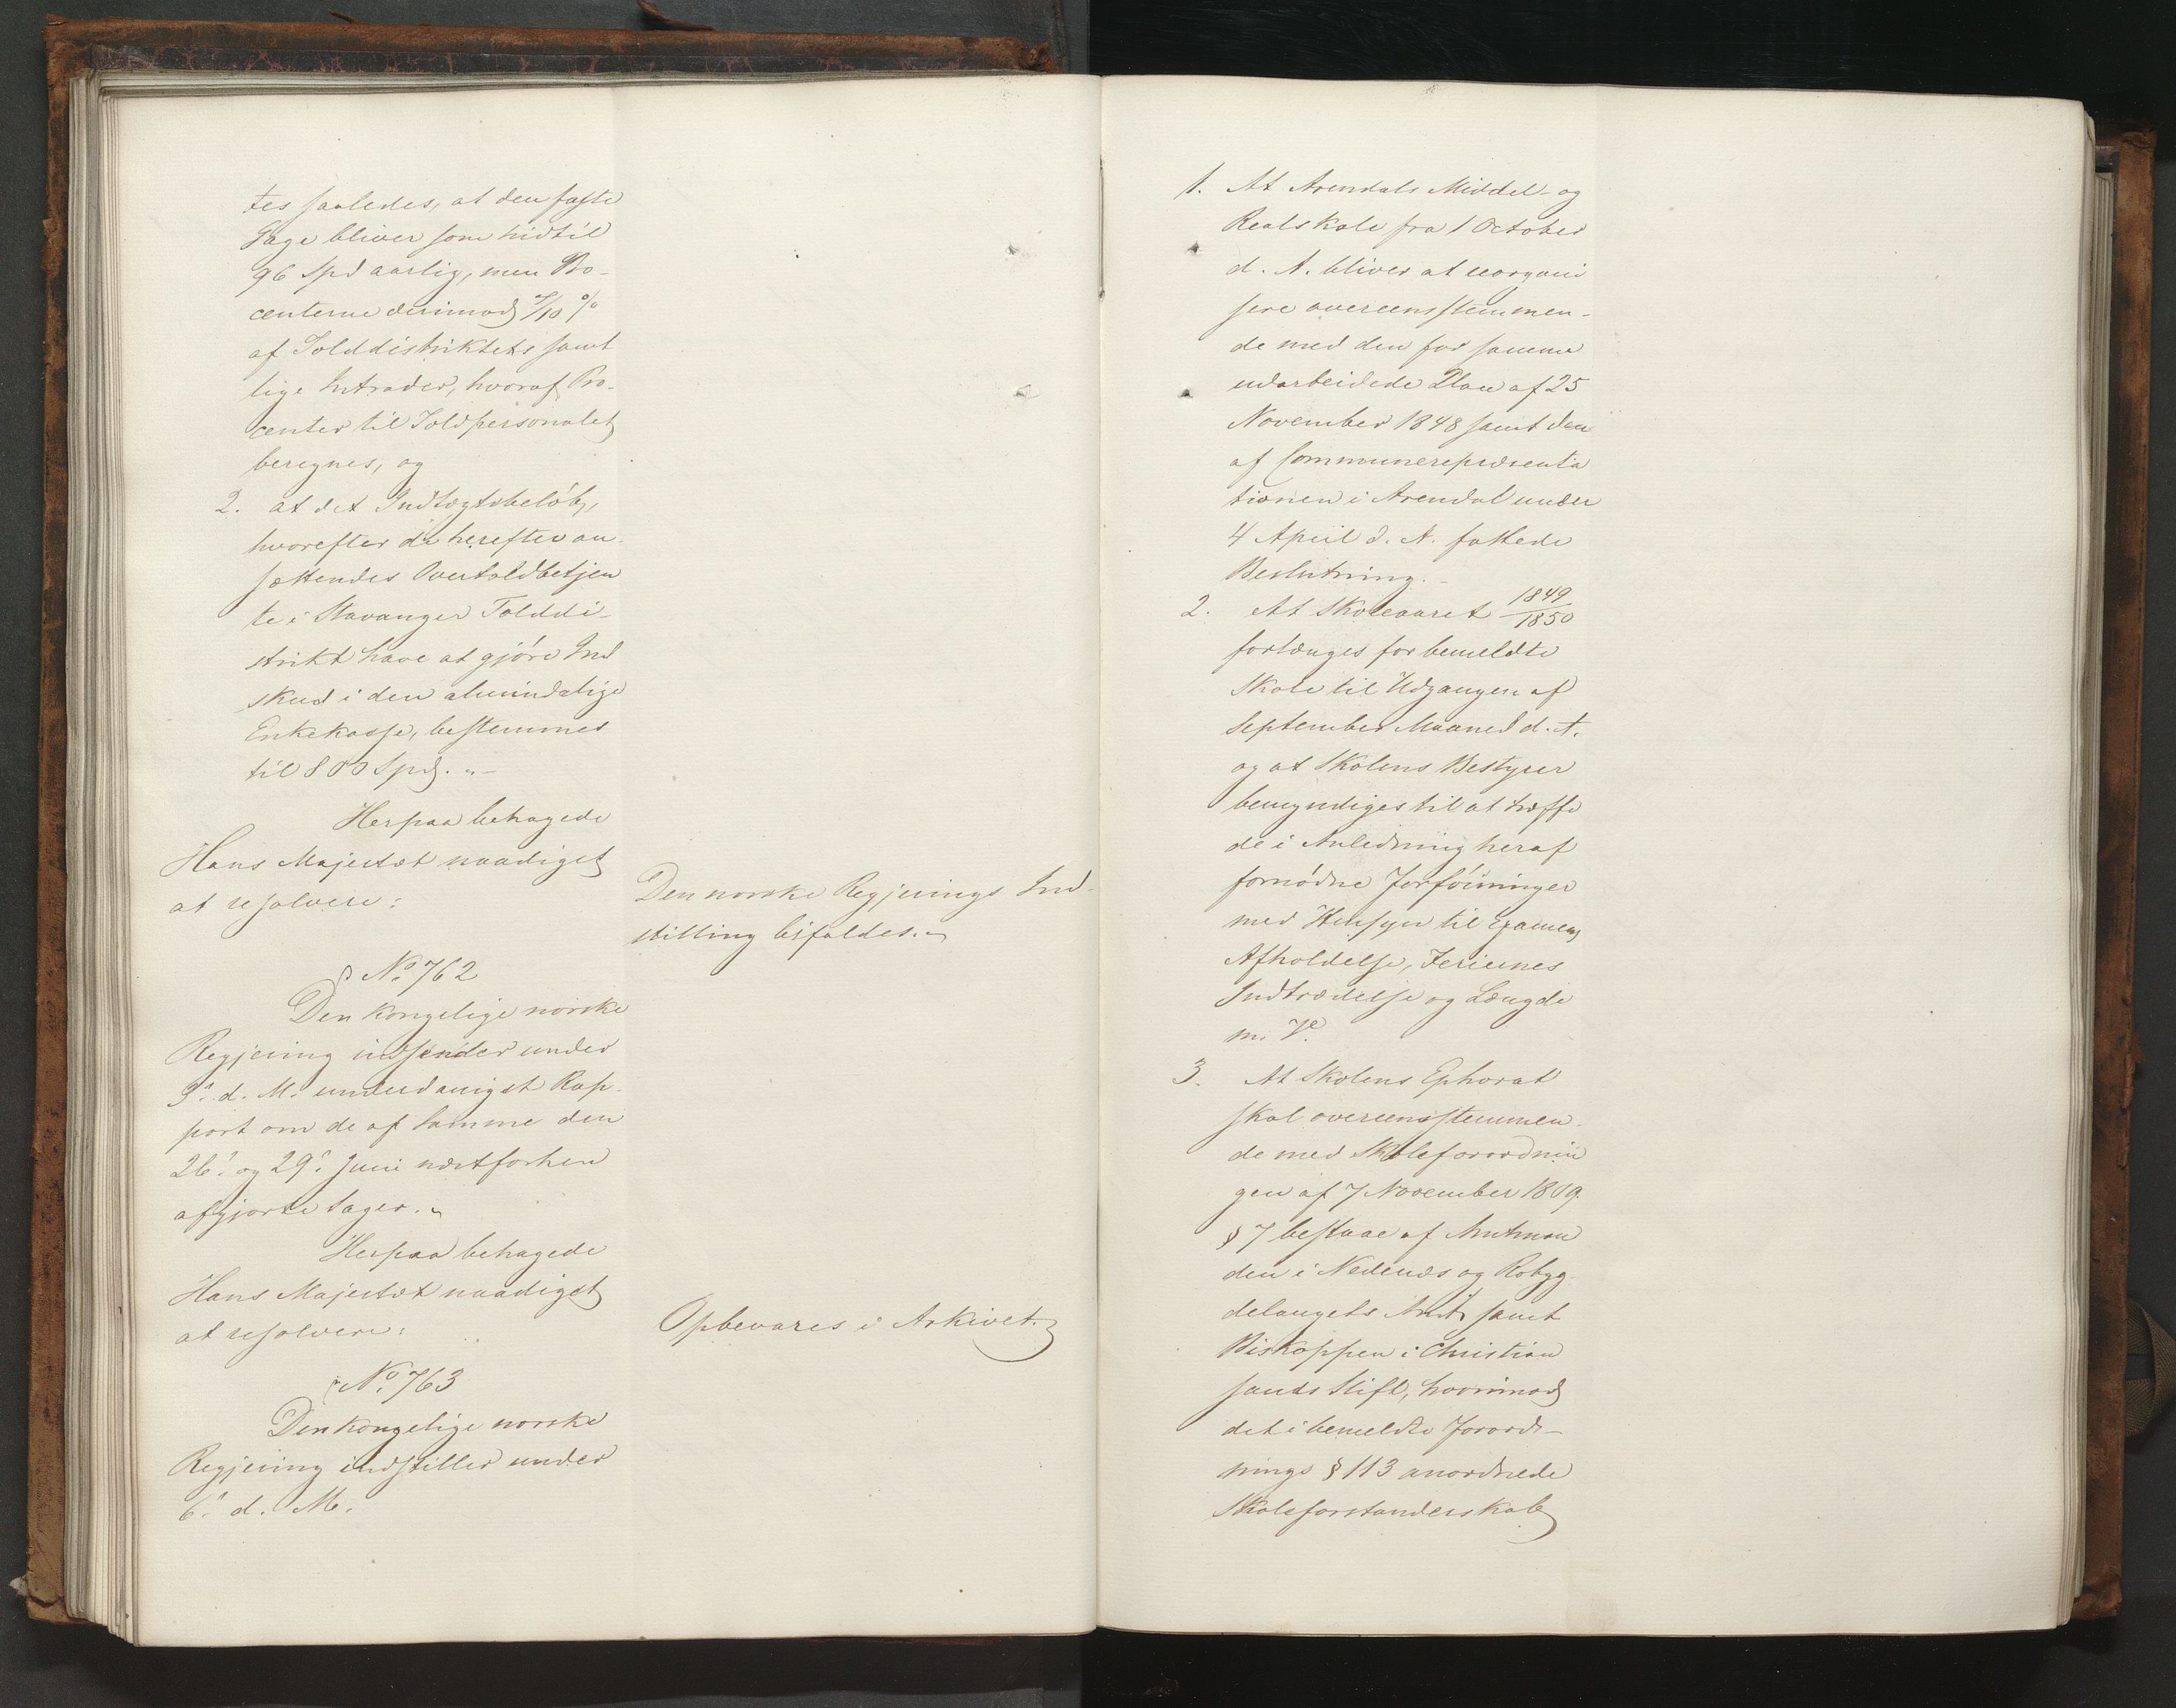 tes saaledes, at den faste
Gage bliver som hidtil
96 Spd aarlig, men Pro-
centerne derimod 7/10 %
af Tolddistriktets samt
lige Intrader, hvoraf Pro-
center til Toldpersonalet
beregnes, og
2. at det Indtægtsbeløb,
hvorefter de herefter an-
sættendes Overtoldbetjen
te i Stavanger Tolddi-
strikt have at gjøre Ind
skud i den almindelige
Enkekasse, bestemmes
til 800 Spd. "-
Herpaa behagede
Hans Majestæt naadigst
at resolvere:
Den norske Regjerings Ind-
stilling bifaldes.
No. 762
Den kongelige norske
Regjering indsender under
3. d. M. underdanigst Rap-
port om de af samme den
26. og 29. Juni næstforhen
afgjorte Sager.
Herpaa behagede
Hans Majestæt naadigst
at resolvere:
Opbevares i Arkivet.
No. 763
Den kongelige norske
Regjering indstiller under
6. d. M.
1. At Arendals Middel- og
Realskole fra 1 October
d. A. bliver at reorgani
sere overeensstemmen-
de med den for samme
udarbeidede Plan af 25
November 1848 samt den
af Communerepræsenta
tionen i Arendal under
4 April d. A. fattede
Beslutning. -
2. At Skoleaaret 1849/1850
forlænges for bemeldte
Skole til Udgangen af
September Maaned d. A.
og at Skolens Bestyrer
bemyndiges til at træffe
de i Anledning heraf
fornødne Forføininger
med Hensyn til Examens
Afholdelse, Feriernes
Indtrædelse og Længde
m. V.
3. At Skolens Ephorat
skal overeensstemmen-
de med Skoleforordnin
gen af 7 November 1809
§ 7 bestaae af Amtman
den i Nedenæs og Robyg
delaugets Amt, samt
Biskoppen i Christian
sands Stift, hvorimod
det i bemeldte Forord-
nings § 113 anordnede
Skoleforstanderskab